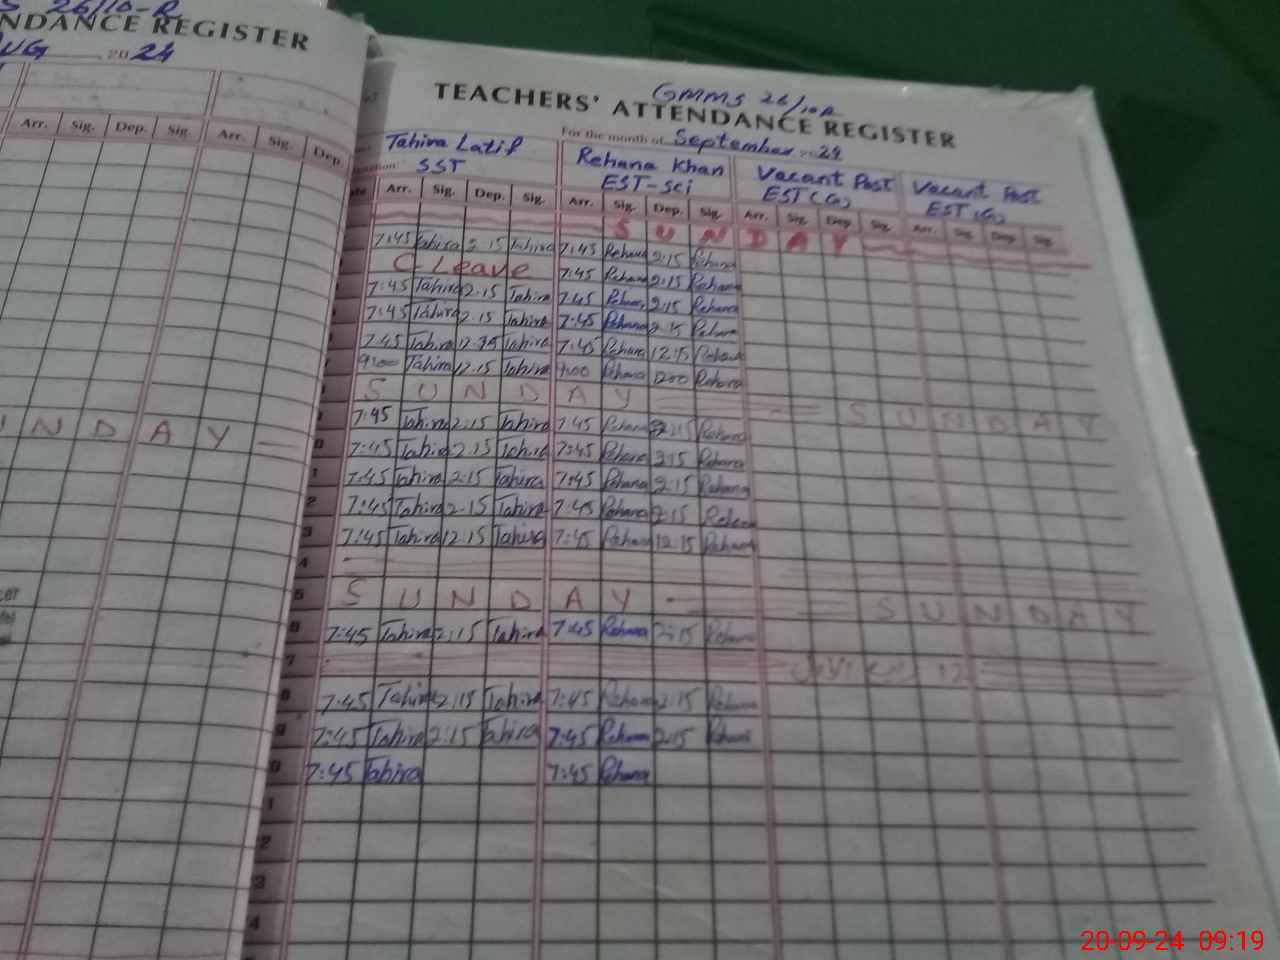 26/10-R
NDANCE REGISTER
UG 2024
Arr. Sig. Dep. Sig Arr. Sig. Dep
N D A Y
GMMS 26/10R
TEACHERS' ATTENDANCE REGISTER
For the month of September 2024
Tahira Latif Rehana Khan Vacant Post Vacant Post
SST EST-Sci EST(G) EST(G)
Arr. Sig. Dep. Sig. Arr. Sig. Dep. Sig Arr. Sig Dep Sig. Arr. Sig. Dep Sig.
S U N D A Y
7:45 Tahira 2:15 Tahira 7:45 Rehana 2:15 Rehana
C Leave 7:45 Rehana 2:15 Rehana
7:45 Tahira 2:15 Tahira 7:45 Rehana 2:15 Rehana
7:45 Tahira 2:15 Tahira 7:45 Rehana 2:15 Rehana
7:45 Tahira Tahira 7:45 Rehana 12:15 Rehana
Tahira 12:15 Tahira Rehana Rehana
S U N D A Y S U N D A Y
7:45 Tahira 2:15 Tahira 7:45 Rehana 2:15 Rehana
0 7:45 Tahira 2:15 Tahira 7:45 Rehana 2:15 Rehana
1 7:45 Tahira 2:15 Tahira 7:45 Rehana 2:15 Rehana
2 7:45 Tahira 2:15 Tahira 7:45 Rehana 2:15 Rehana
3 7:45 Tahira 12:15 Tahira 7:45 Rehana 12:15 Rehana
4
5 S U N D A Y S U N D A Y
6 7:45 Tahira 2:15 Tahira 7:45 Rehana 2:15 Rehana
7
8 7:45 Tahira 2:15 Tahira 7:45 Rehana 2:15 Rehana
9 7:45 Tahira 2:15 Tahira 7:45 Rehana 2:15 Rehana
0 7:45 Tahira 7:45 Rehana
1
2
3
4
20-09-24 09:19